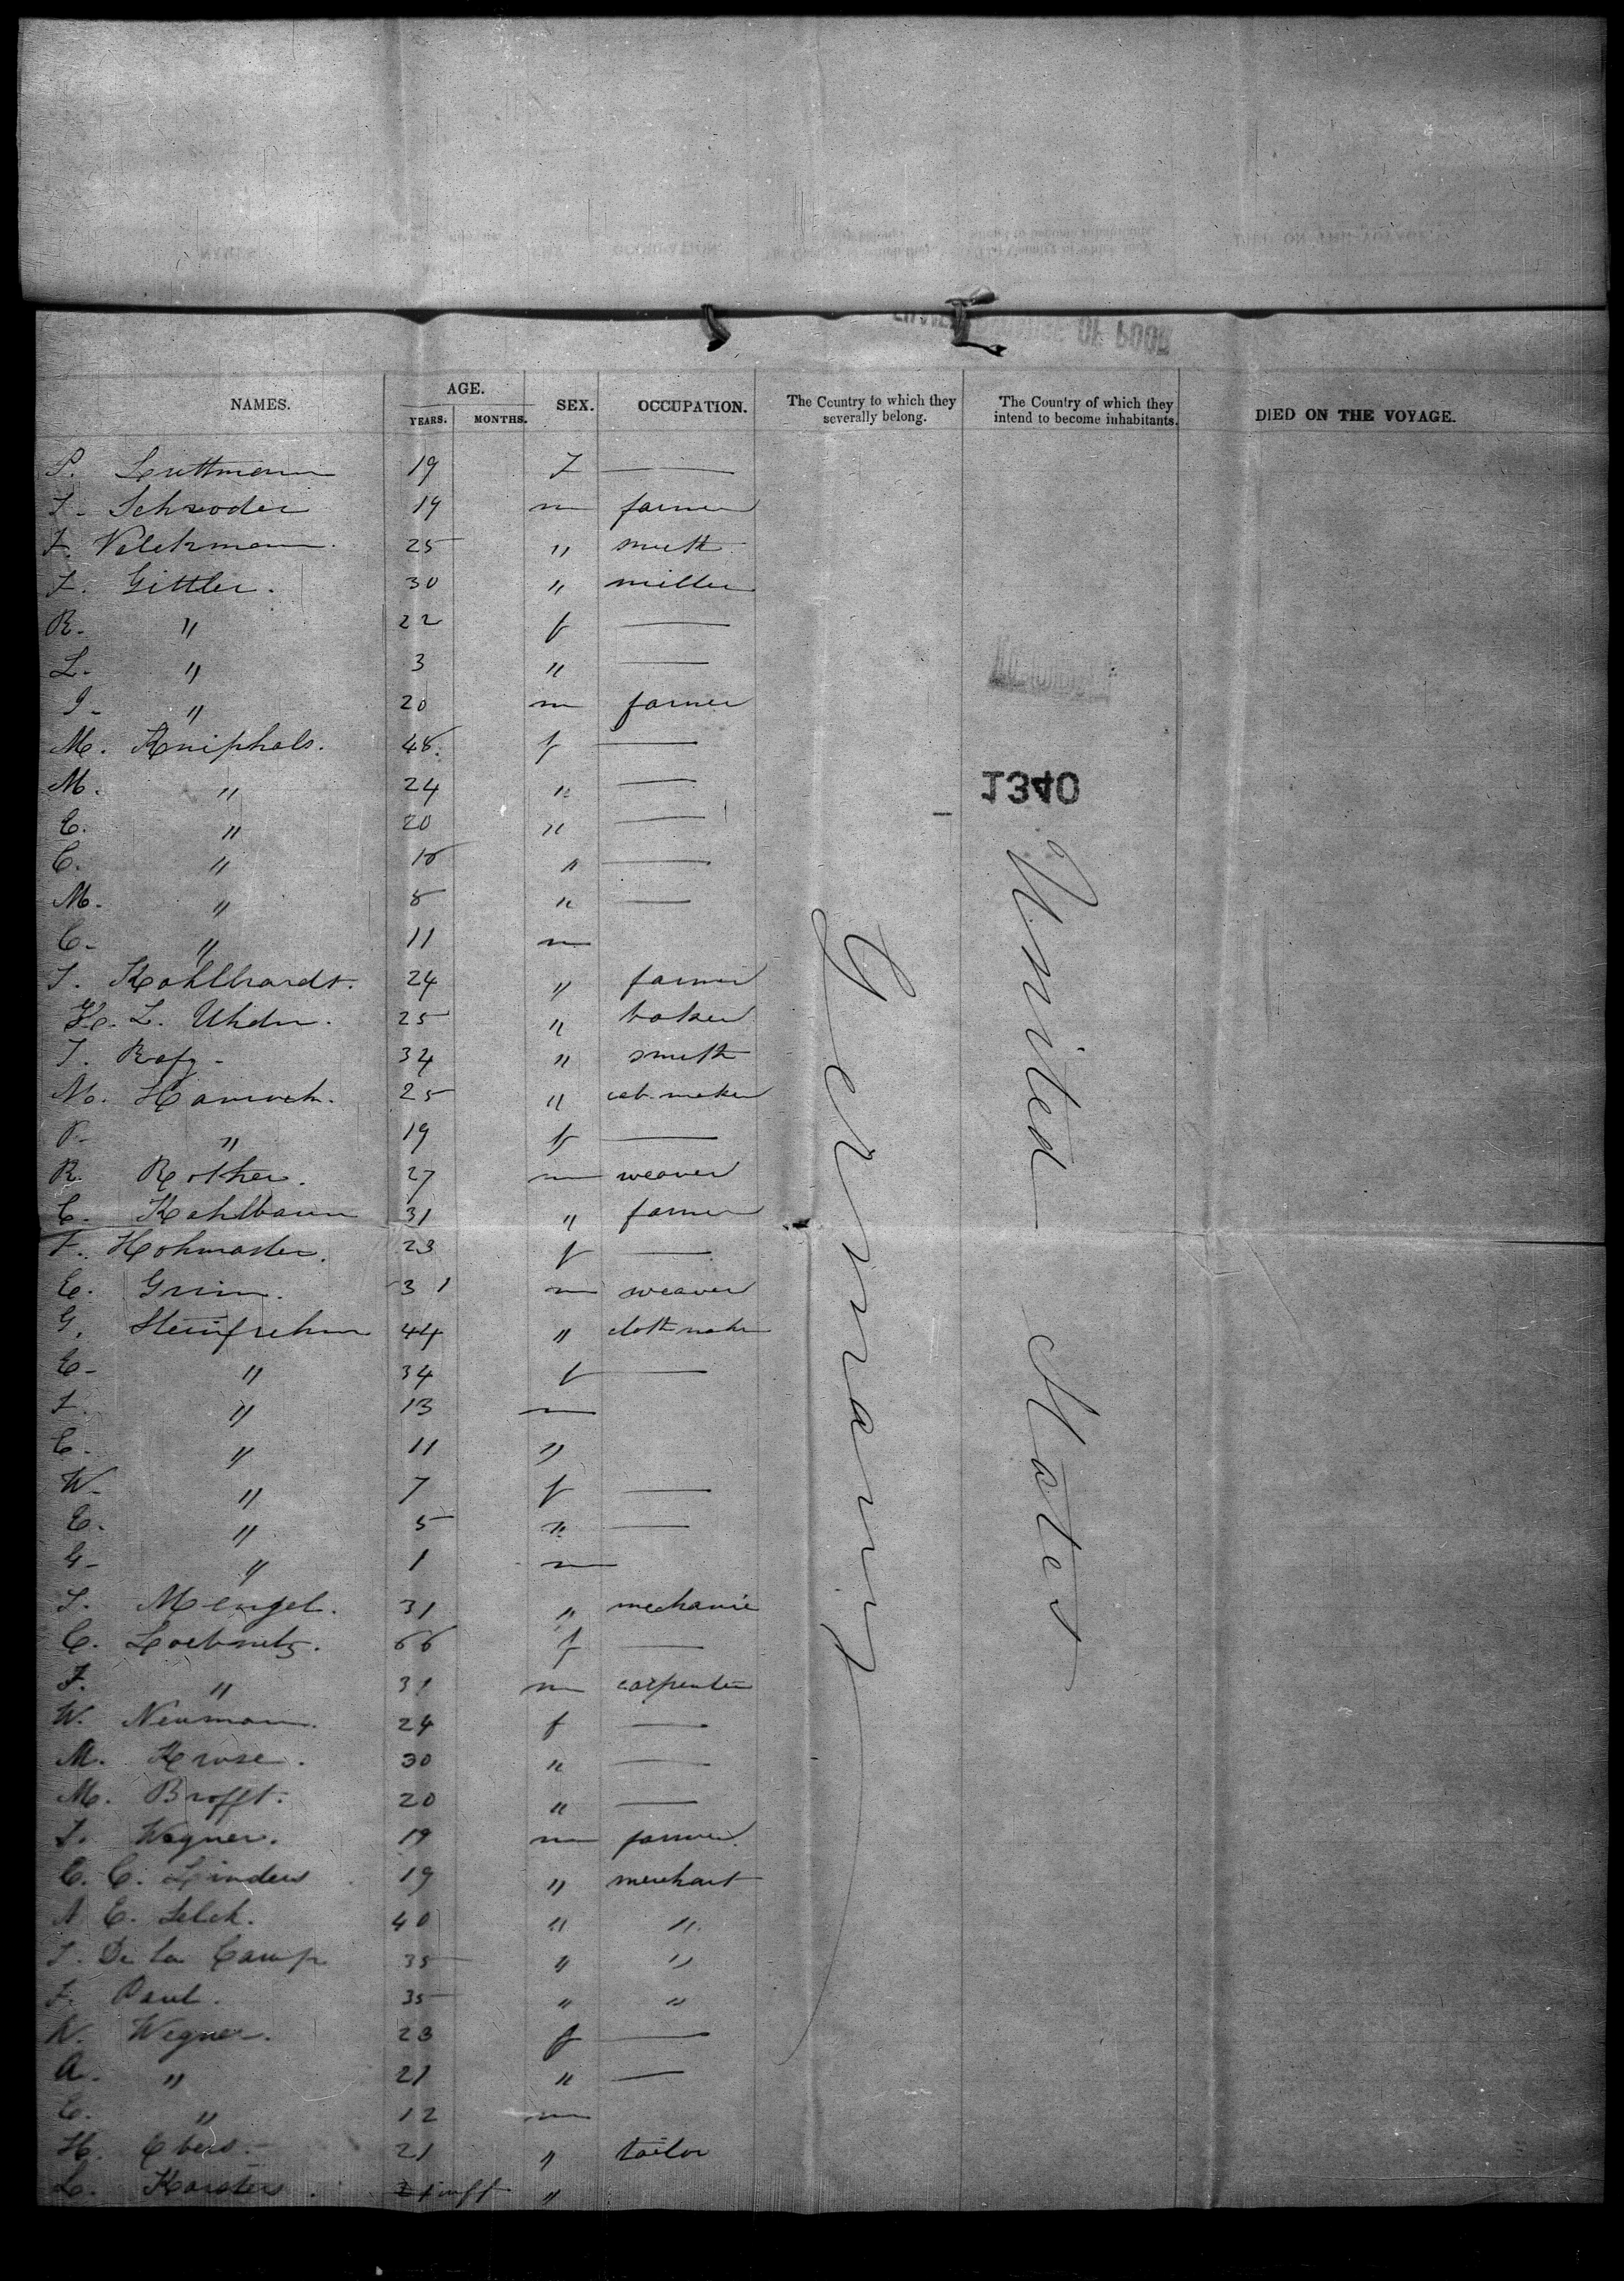 NAMES. AGE. YEARS. MONTHS. SEX. OCCUPATION. The Country to which they severally belong. The Country of which they intend to become inhabitants. DIED ON THE VOYAGE.
1340
Germany
United States
P. Luttmann 19 F —
J. Schroder 19 m farmer
F. Velckmann. 25 " smith
F. Gittler. 30 " miller
R. " 22 f —
L. " 3 " —
J. " 20 m farmer
M. Kniphals. 48. f —
M. " 24 " —
E. " 20 " —
C. " 18 " —
M. " 8 " —
C. " 11 m
J. Kohlhardt. 24 " farmer
L. Uhdn. 25 " baker
J. 34 " smith
25 " cab. maker
" 19 f —
R. Rother. 27 m weaver
C. Kahlbaum 31 " farmer
F. Hohmaster. 23 f —
E. Grim. 31 m weaver
G. 44 " cloth maker
E. " 34 f —
F. " 13 m
C. " 11 "
W. " 7 f —
E. " 5 " —
G. " 1 m
J. Mengel. 31 " mechanic
C. Loebnitz. 66 f —
F. " 31 m carpenter
W. Neumann. 24 f —
M. Kruse. 30 " —
M. Brofft. 20 " —
J. Wagner. 19 m farmer.
C. C. Linders 19 " merchant
A E. Selck. 40 " "
J. De la Camp 35 " "
F. Paul. 35 " "
W. Wegner. 23 f —
A. " 21 " —
C. " 12 m
H. Ebers. 21 " tailor
L. Karsters. inft "